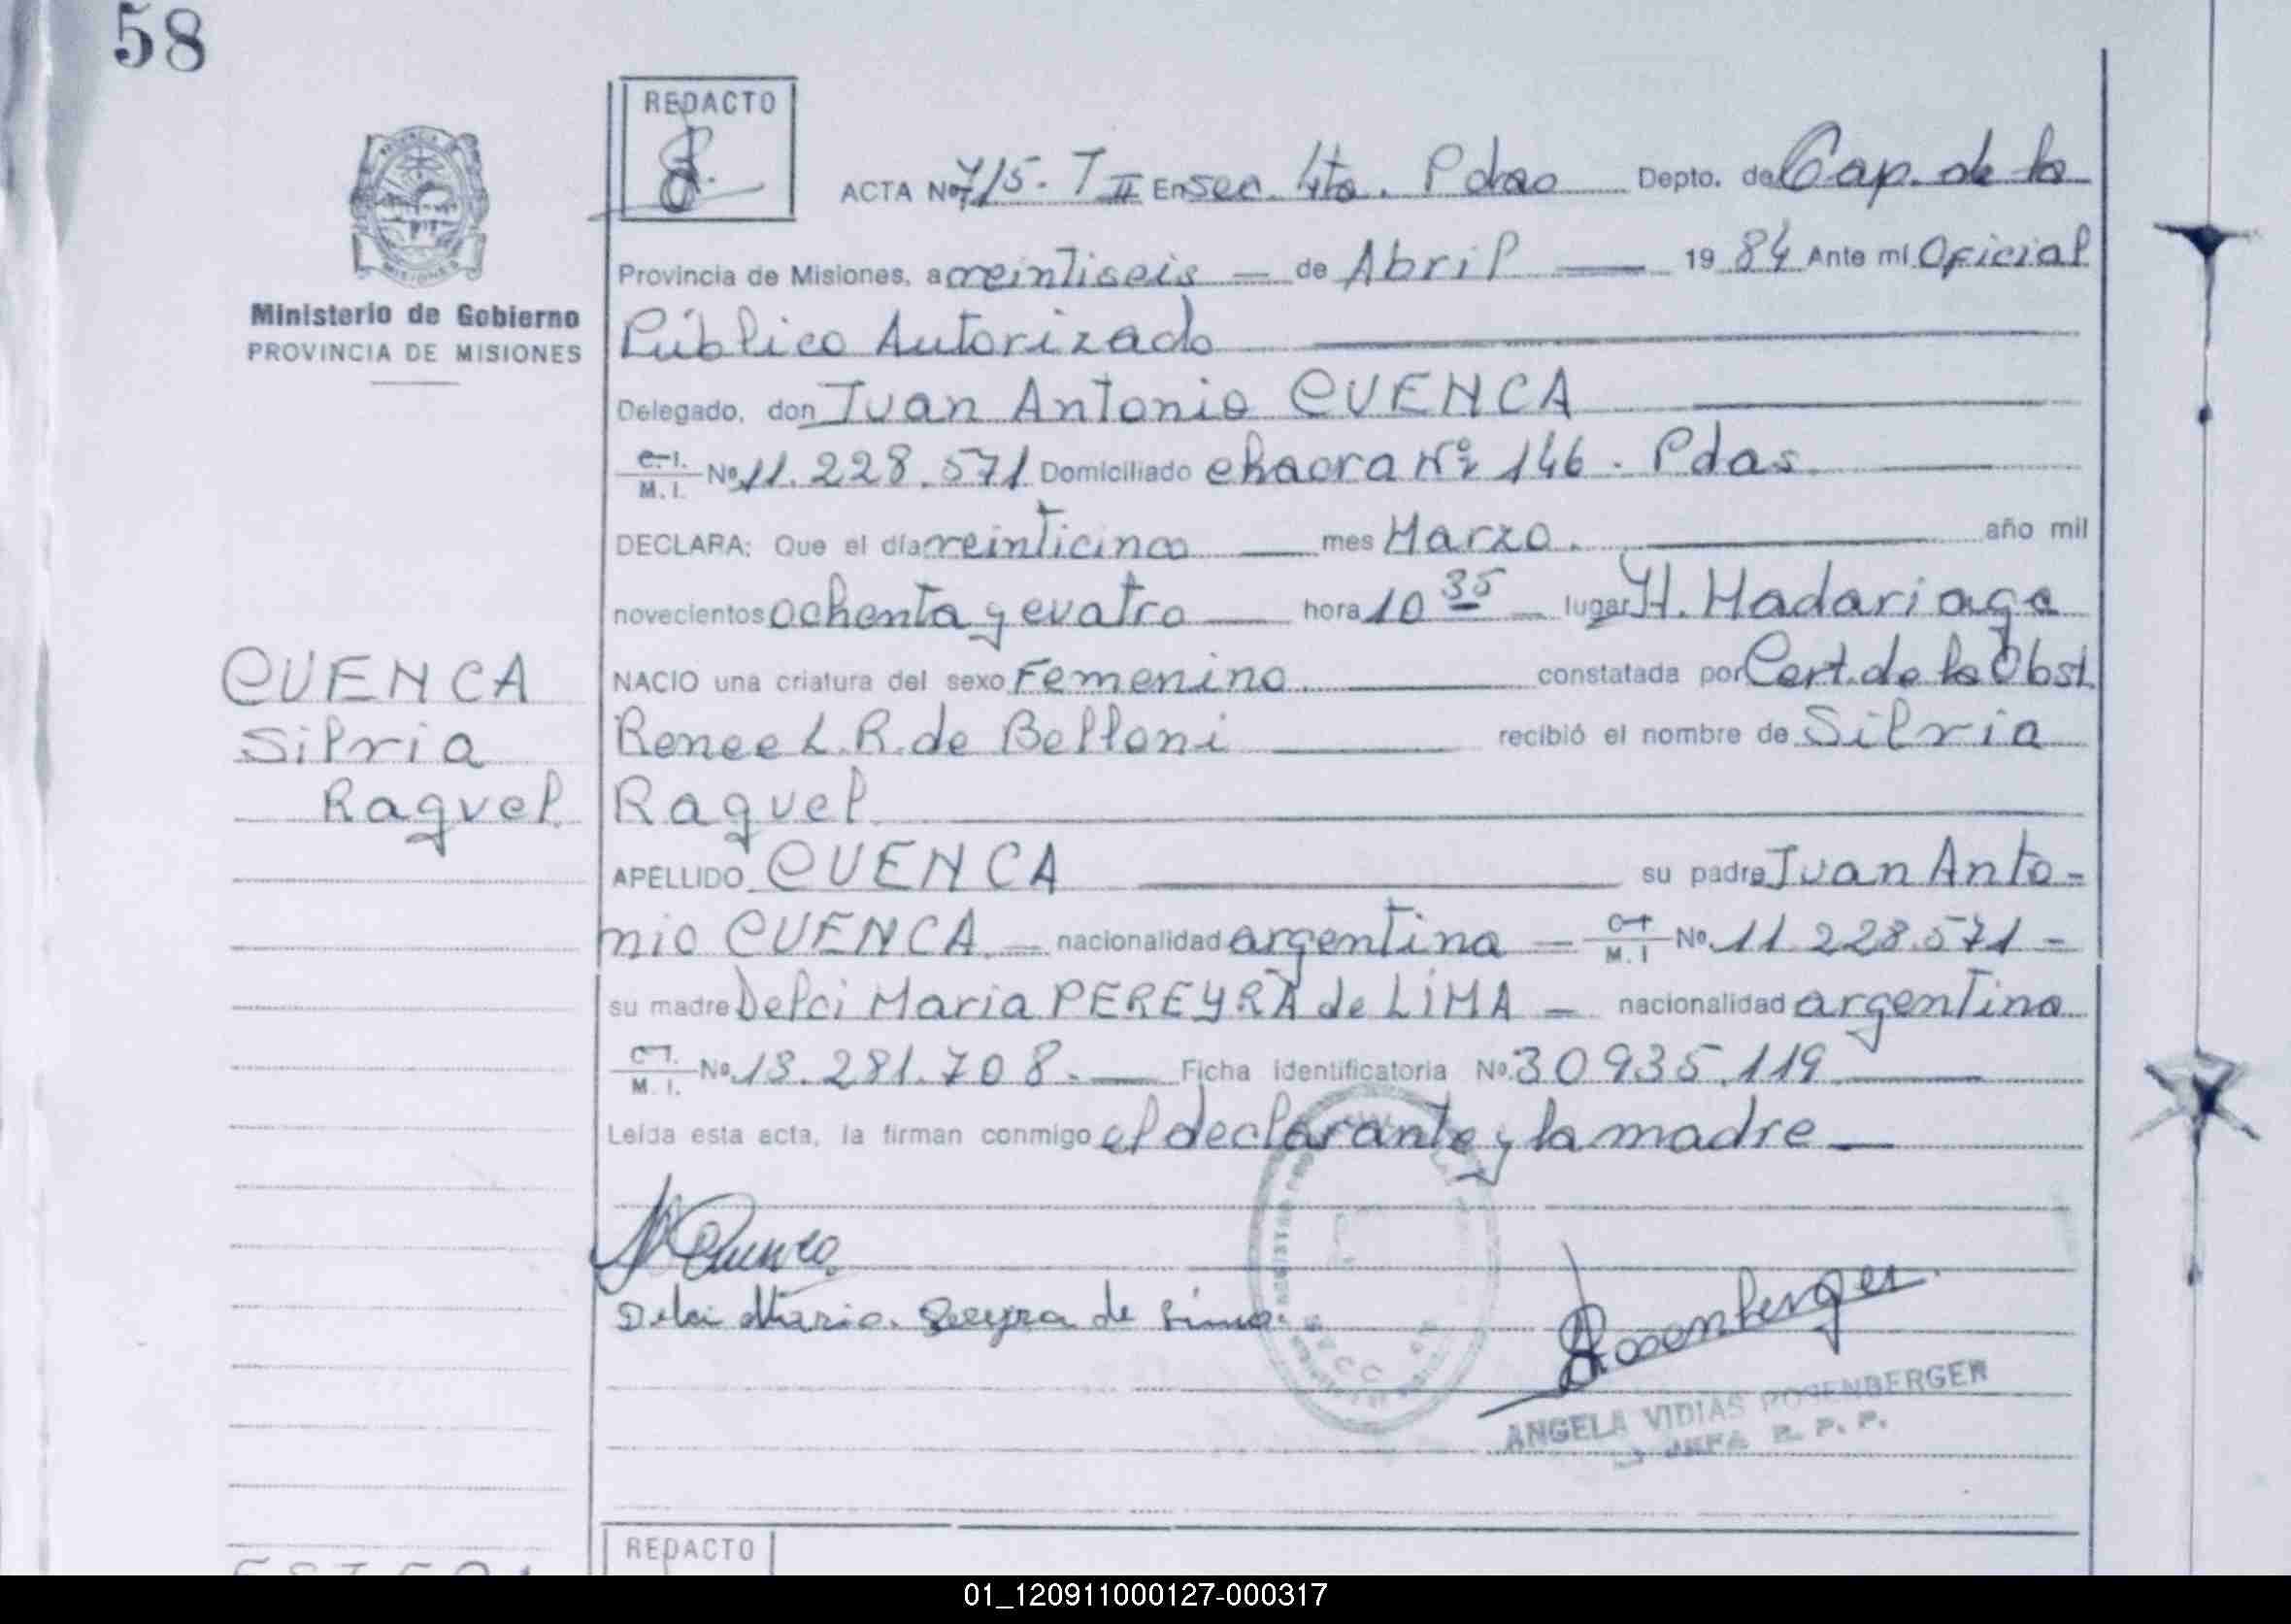 58
REDACTO
ACTA Nº 715. T II En sec. 4ta. Pdas Depto. de Cap. de la
Provincia de Misiones, a veintiseis — de Abril — 19 84 Ante mí Oficial
Ministerio de Gobierno
PROVINCIA DE MISIONES
Público Autorizado
Delegado, don Juan Antonio CUENCA
C.I. M.I. Nº 11.228.571 Domiciliado chacra Nº 146. Pdas.
DECLARA: Que el día veinticinco — mes Marzo. — año mil
novecientos ochenta y cuatro — hora 10 35 — lugar H. Madariaga
CUENCA
Silvia
Raquel
NACIO una criatura del sexo Femenino. — constatada por Cert. de la Obst.
Renee L. R. de Belloni — recibió el nombre de Silvia
Raquel
APELLIDO CUENCA — su padre Juan Anto-
nio CUENCA. — nacionalidad argentina — C.I. M.I Nº 11.228.571 -
su madre Delci Maria PEREYRA de LIMA — nacionalidad argentina
C.I. M.I. Nº 13.281.708. — Ficha identificatoria Nº 30935.119
Leída esta acta, la firman conmigo el declarante y la madre —
Cuenca.
Delci Maria. Pereyra de Lima.
Rosenberger
ANGELA VIDIAS ROSENBERGER
JEFA R. P. P.
REDACTO
01_120911000127-000317